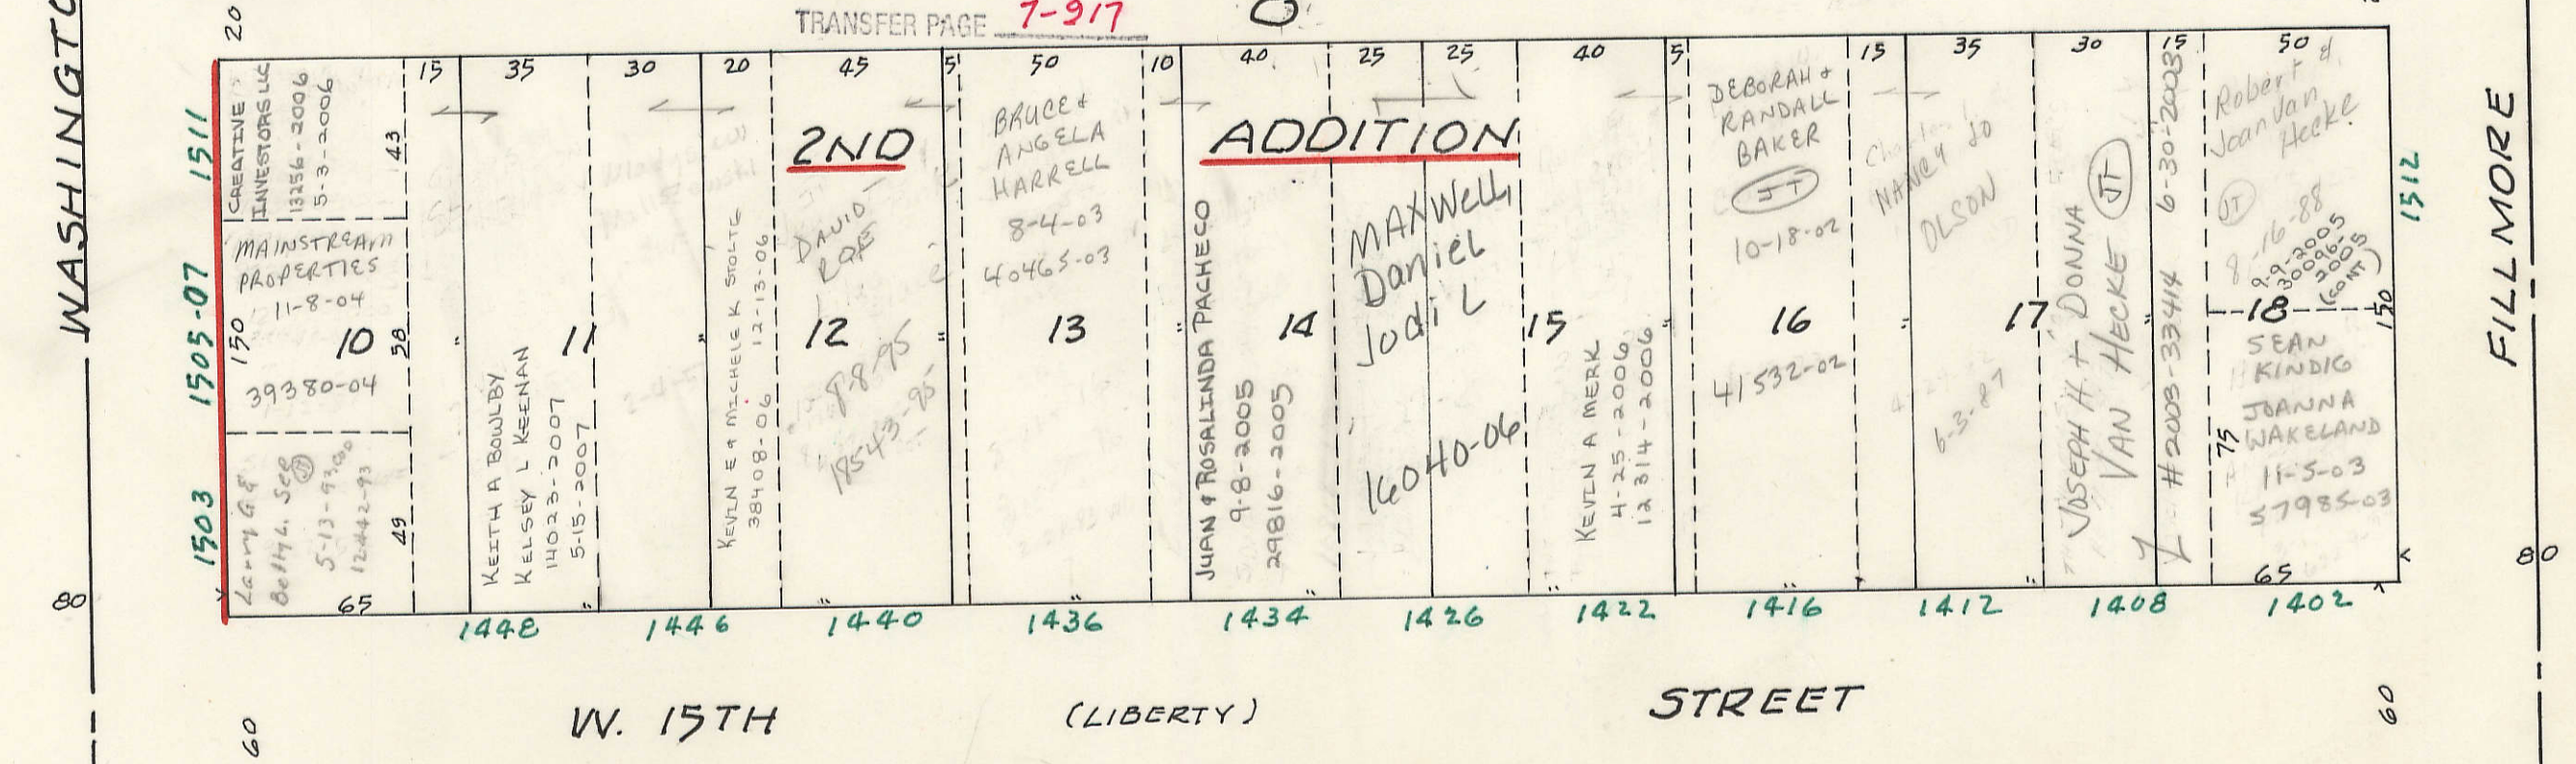 20
TRANSFER PAGE 7-917
WASHINGTO
15 35 30 20 45 5' 50 10 40 25 25 40 5' 15 35 30 15 50
2ND ADDITION
1511
CREATIVE
INVESTORS LLC
13256-2006
5-3-2006
43
1505-07
MAINSTREAM
PROPERTIES
11-8-04
150
10
58
39380-04
1503
Larry G &
Betty L. See
JT
5-13-93
12442-93
49
65
11
KEITH A BOWLBY
KELSEY L KEENAN
14023-2007
5-15-2007
KEVIN E & MICHELE K STOLTE
38408-06 12-13-06
DAVID
12
8-8-95
18543-95
BRUCE &
ANGELA
HARRELL
8-4-03
40465-03
13
14
JUAN & ROSALINDA PACHECO
9-8-2005
29816-2005
MAXWell,
Daniel
Jodi L
16040-06
15
KEVIN A MERK
4-25-2006
12314-2006
DEBORAH &
RANDALL
BAKER
JT
10-18-02
16
41532-02
NANCY JO
OLSON
17
6-3-87
JOSEPH H + DONNA
VAN HECKE JT
#2003-33414 6-30-2003
Robert &
Joan Van
Hecke
JT
8-16-88
9-9-2005
30096-
2005
(CONT)
18
150
SEAN
KINDIG
JOANNA
WAKELAND
75
11-5-03
57985-03
65
1512
FILLMORE
80
80
1448 1446 1440 1436 1434 1426 1422 1416 1412 1408 1402
60
W. 15TH (LIBERTY) STREET
60